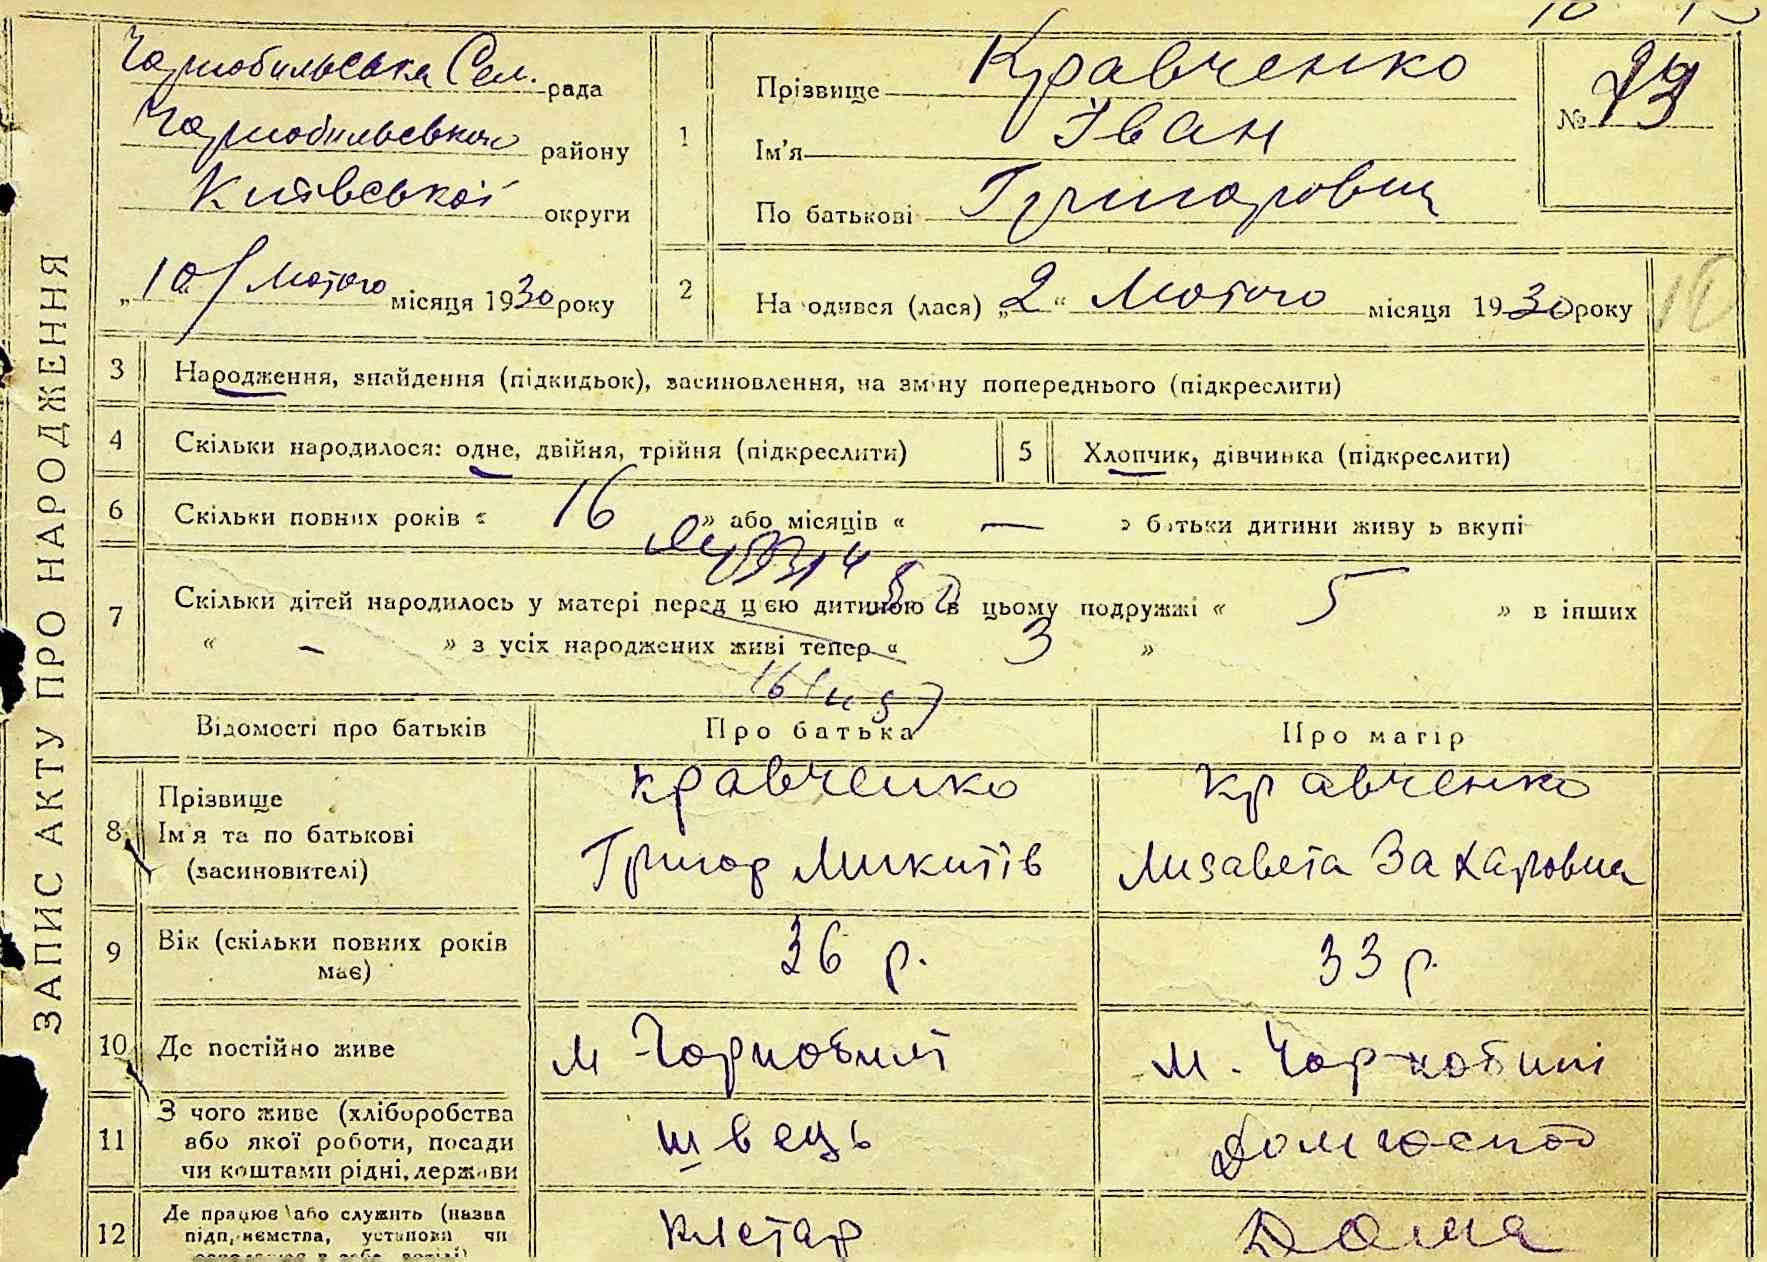 ЗАПИС АКТУ ПРО НАРОДЖЕННЯ
Чарнобильська Сел. рада
Чарнобильського району
Київської округи
„10“ Лютого місяця 1930 року
1
Прізвище Кравченко
Ім'я Іван
По батькові Григорович
№ 73
2
Народився (лася) „2“ Лютого місяця 1930 року
3 Народження, знайдення (підкидьок), засиновлення, на зміну попереднього (підкреслити)
4 Скільки народилося: одне, двійня, трійня (підкреслити)
5 Хлопчик, дівчинка (підкреслити)
6 Скільки повних років « 16 » або місяців « — » батьки дитини живуть вкупі
7 Скільки дітей народилось у матері перед цією дитиною в цьому подружжі « 5 » в інших
« - » з усіх народжених живі тепер « 3 »
Відомості про батьків
Про батька
Про матір
8 Прізвище
Ім'я та по батькові
(засиновителі)
Кравченко
Григор Микитів
Кравченко
Лизавета Захаровна
9 Вік (скільки повних років
має)
36 р.
33 р.
10 Де постійно живе
м Чарнобилі
м. Чарнобилі
11 З чого живе (хліборобства
або якої роботи, посади
чи коштами рідні, держави
швець
Домгоспод
12 Де працює або служить (назва
підприємства, установи чи
Кустар
Дома